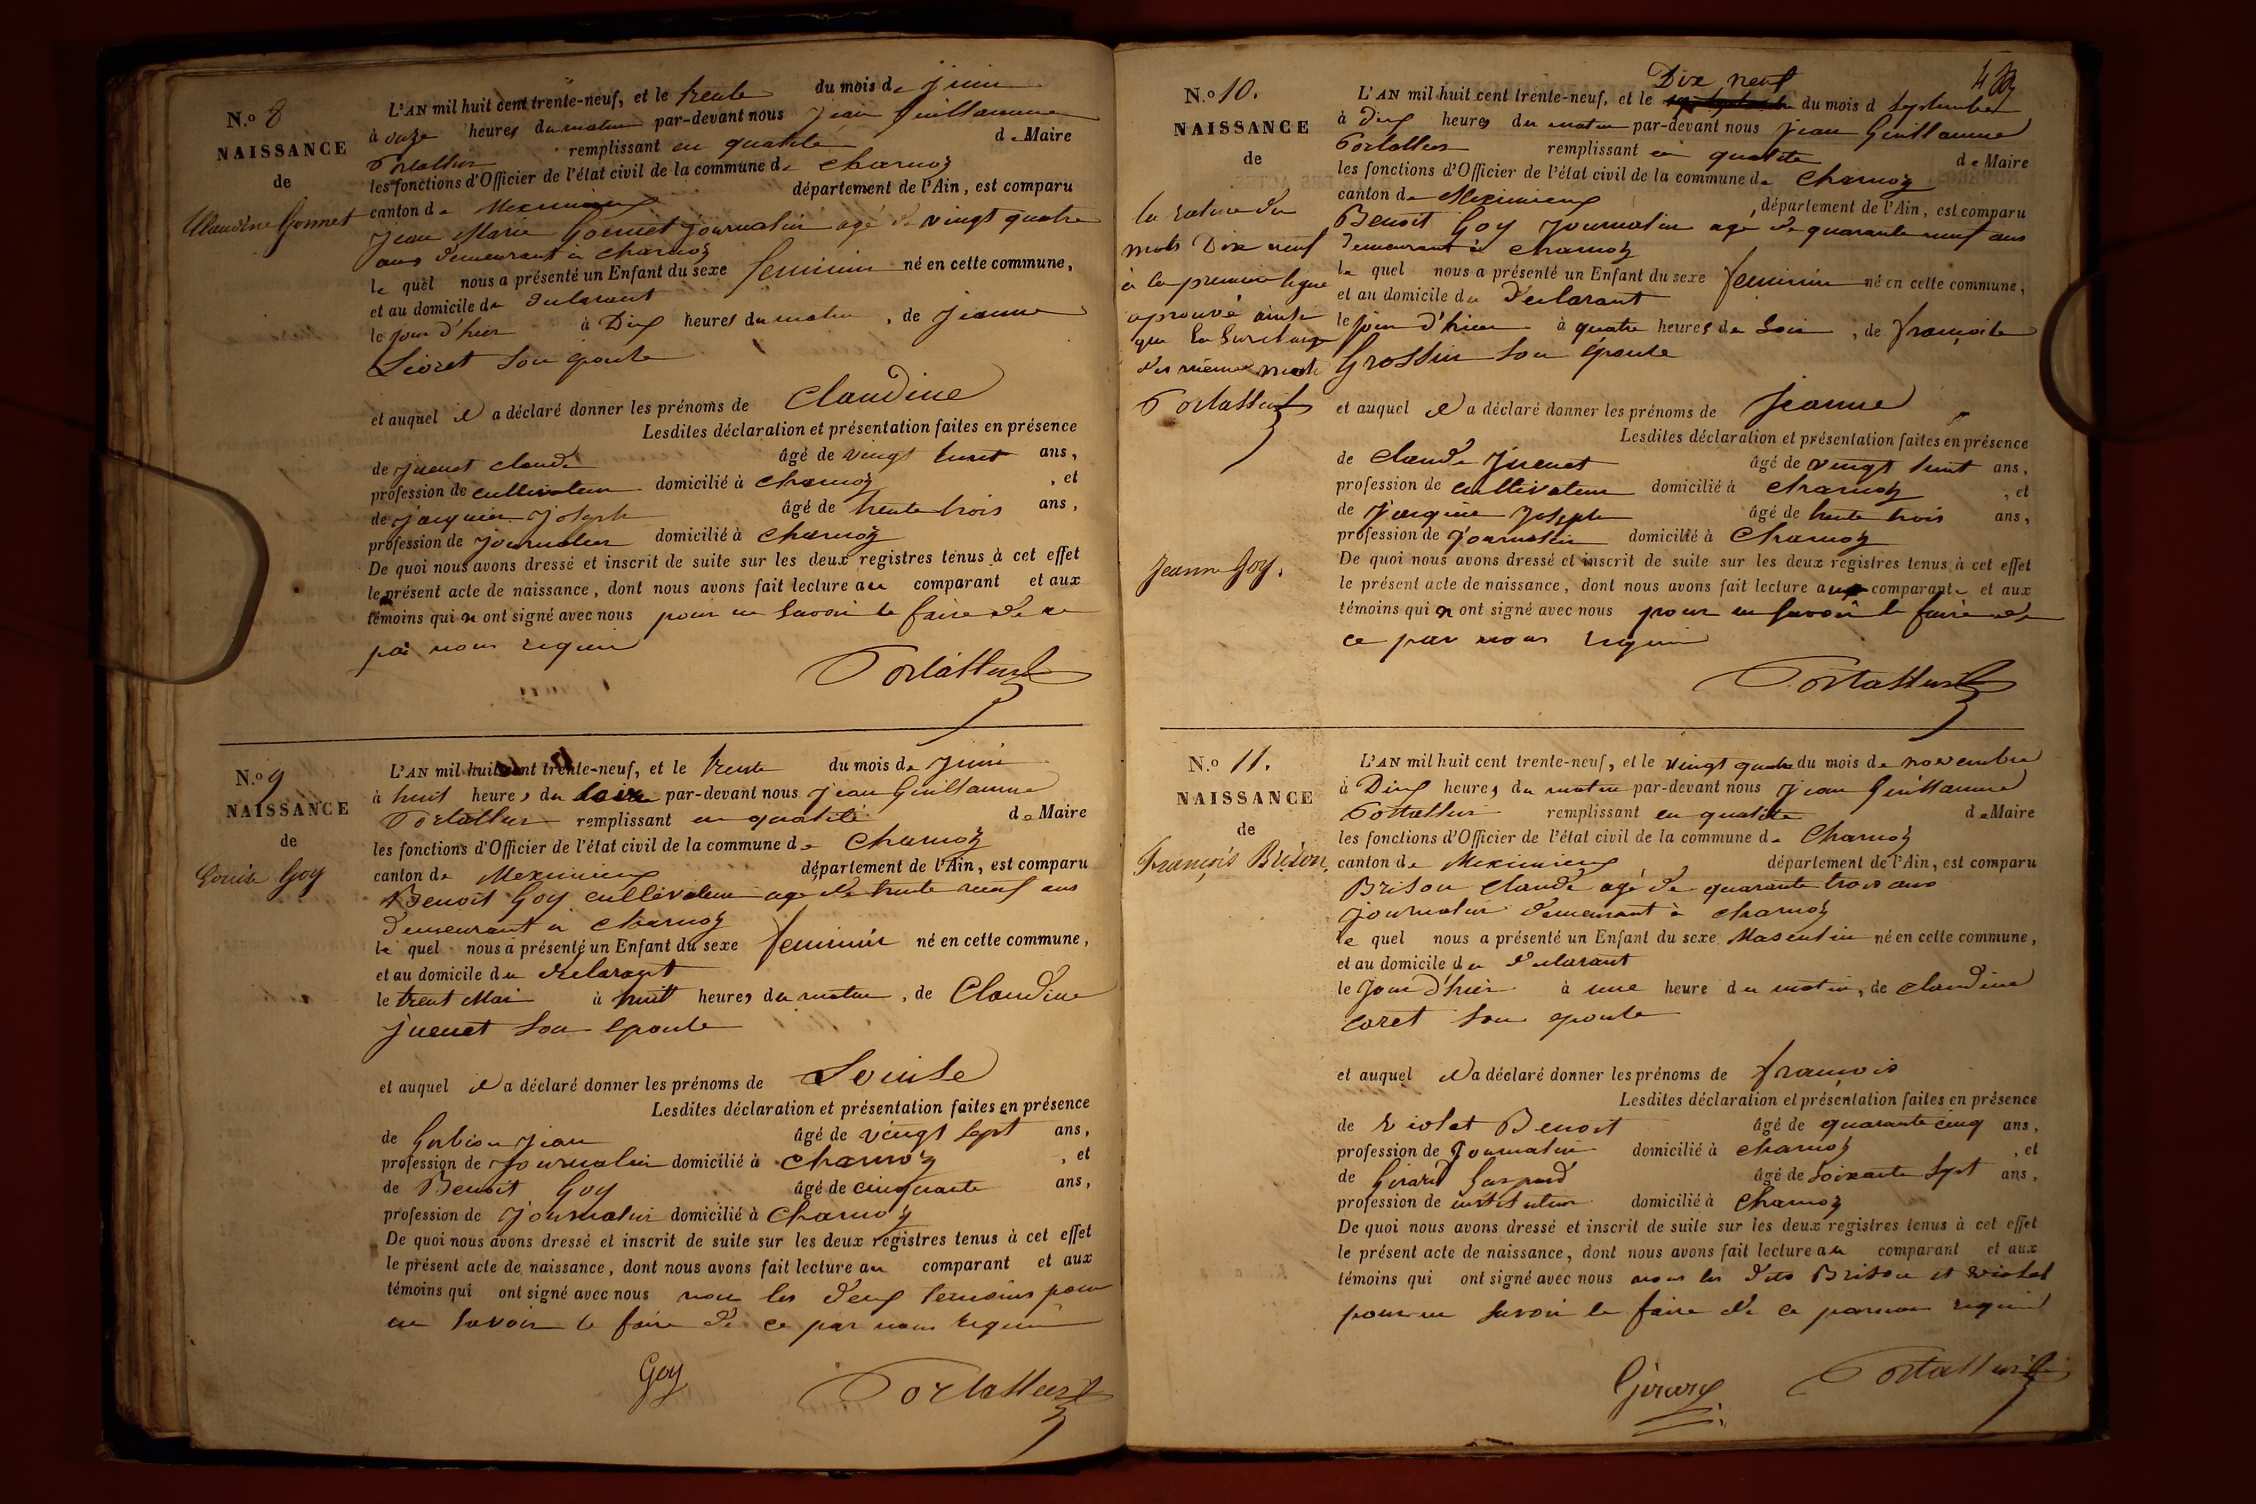 N.º 8
NAISSANCE
de
Claudine Gonnet
L'AN mil huit cent trente-neuf, et le trente du mois de juin
à onze heures du matin par-devant nous Jean Guillaume
Portallier remplissant en qualité de Maire
les fonctions d'Officier de l'état civil de la commune de Charnoz
canton de Meximieux département de l'Ain, est comparu
Jean Marie Gonnet journalier agé de vingt quatre
ans demeurant à charnoz
le quel nous a présenté un Enfant du sexe feminin né en cette commune,
et au domicile du declarant
le jour d'hier à Dix heures du matin, de jeanne
Livret son épouse
et auquel il a déclaré donner les prénoms de Claudine
Lesdites déclaration et présentation faites en présence
de juenet claude âgé de vingt huit ans,
profession de cultivateur domicilié à charnoz, et
de jacquier Joseph âgé de trente trois ans,
profession de journalier domicilié à charnoz
De quoi nous avons dressé et inscrit de suite sur les deux registres tenus à cet effet
le présent acte de naissance, dont nous avons fait lecture au comparant et aux
témoins qui n ont signé avec nous pour ne savoir le faire de ce
par nous requis
Portallier
N.º 9
NAISSANCE
de
Louise Goy
L'AN mil huit cent trente-neuf, et le trente du mois de juin
à huit heures du soir par-devant nous jean Guillaume
Portallier remplissant en qualité de Maire
les fonctions d'Officier de l'état civil de la commune de Charnoz
canton de Meximieux département de l'Ain, est comparu
Benoit Goy cultivateur agé de trente neuf ans
demeurant à charnoz
le quel nous a présenté un Enfant du sexe feminin né en cette commune,
et au domicile du declarant
le trent Mai à huit heures du matin, de Claudine
juenet son epouse
et auquel il a déclaré donner les prénoms de Louise
Lesdites déclaration et présentation faites en présence
de Jean âgé de vingt sept ans,
profession de journalier domicilié à charnoz, et
de Benoit Goy âgé de cinquante ans,
profession de journalier domicilié à Charnoz
De quoi nous avons dressé et inscrit de suite sur les deux registres tenus à cet effet
le présent acte de naissance, dont nous avons fait lecture au comparant et aux
témoins qui ont signé avec nous non les deux temoins pour
ne savoir le faire de ce par nous requis
Goy Portallier
N.º 10.
NAISSANCE
de
la rature des
mots Dix neuf
à la premiere ligne
aprouvé ainsi
que la surcharge
des mêmes mots
Portallier
Jeanne Goy.
Dix neuf
L'AN mil huit cent trente-neuf, et le du mois d septembre
à dix heures du matin par-devant nous jean Guillaume
Portallier remplissant en qualité de Maire
les fonctions d'Officier de l'état civil de la commune de Charnoz
canton de Meximieux, département de l'Ain, est comparu
Benoit Goy journalier agé de quarante neuf ans
demeurant à charnoz
le quel nous a présenté un Enfant du sexe feminin né en cette commune,
et au domicile du declarant
le jour d'hier à quatre heures de soir, de françoise
Grossin son épouse
et auquel il a déclaré donner les prénoms de jeanne
Lesdites déclaration et présentation faites en présence
de claude juenet âgé de vingt huit ans,
profession de cultivateur domicilié à charnoz, et
de jacquier joseph âgé de trente trois ans,
profession de journalier domicilié à Charnoz
De quoi nous avons dressé et inscrit de suite sur les deux registres tenus à cet effet
le présent acte de naissance, dont nous avons fait lecture au comparant et aux
témoins qui n ont signé avec nous pour ne savoir le faire de
ce par nous requis
Portallier
N.º 11.
NAISSANCE
de
François Brison.
L'AN mil huit cent trente-neuf, et le vingt quatre du mois de novembre
à Dix heures du matin par-devant nous jean Guillaume
Portallier remplissant en qualité de Maire
les fonctions d'Officier de l'état civil de la commune de Charnoz
canton de Meximieux département de l'Ain, est comparu
Brison Claude agé de quarante trois ans
journalier demeurant à charnoz
le quel nous a présenté un Enfant du sexe Masculin né en cette commune,
et au domicile du declarant
le jour d'hier à une heure du matin, de claudine
coret son epouse
et auquel il a déclaré donner les prénoms de françois
Lesdites déclaration et présentation faites en présence
de Violet Benoit âgé de quarante cinq ans,
profession de journalier domicilié à charnoz, et
de Girard Gaspard âgé de soixante sept ans,
profession de instituteur domicilié à Charnoz
De quoi nous avons dressé et inscrit de suite sur les deux registres tenus à cet effet
le présent acte de naissance, dont nous avons fait lecture au comparant et aux
témoins qui ont signé avec nous non les dits Brison et Violet
pour ne savoir le faire de ce par nous requis
Girard Portallier